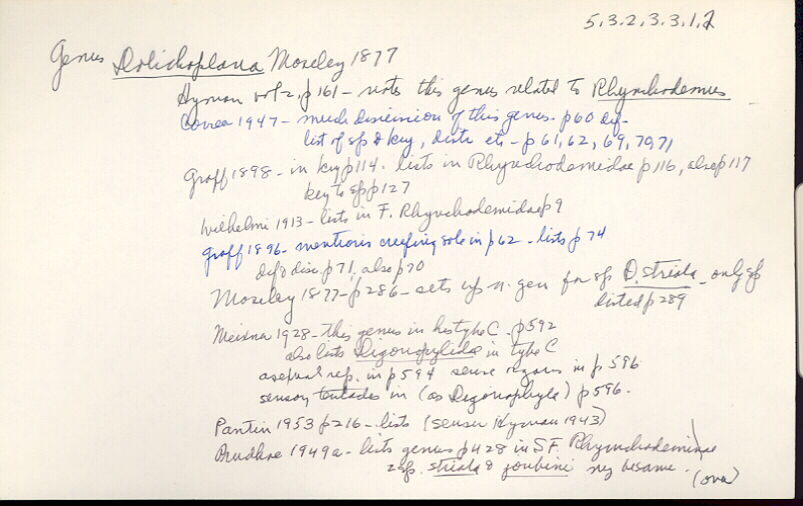 5.3.2.3.3.1.2
Genus Dolichoplana Moseley 1877
Hyman vol 2, p 161 - notes this genus related to Rhynchodemus
Correa 1947 - much discussion of this genus. p 60 def -
list of sp & key, distr etc - p 61, 62, 69, 70, 71
Graff 1898 - in key p 114. lists in Rhynchodemidae p 116, also p 117
key to sp p 127
Wilhelmi 1913 - lists in F. Rhynchodemidae p 9
Graff 1896 - mentions creeping sole in p 62 - lists p 74
def & disc. p 71, also p 70
Moseley 1877 - p 286 - sets up n. gen for sp D. striata - only sp
listed p 289
Meixner 1928 - this genus in his type C - p 592
also lists Digonopylida in type C
asexual rep. in p 594 sense organs in p 596
sensory tentacles in (as Digonophyla) p 596.
Pantin 1953 p 216 - lists (sensu Hyman 1943)
Prudhoe 1949a - lists genus p 428 in SF. Rhynchodeminae
2 sp. striata & joubini
(over)